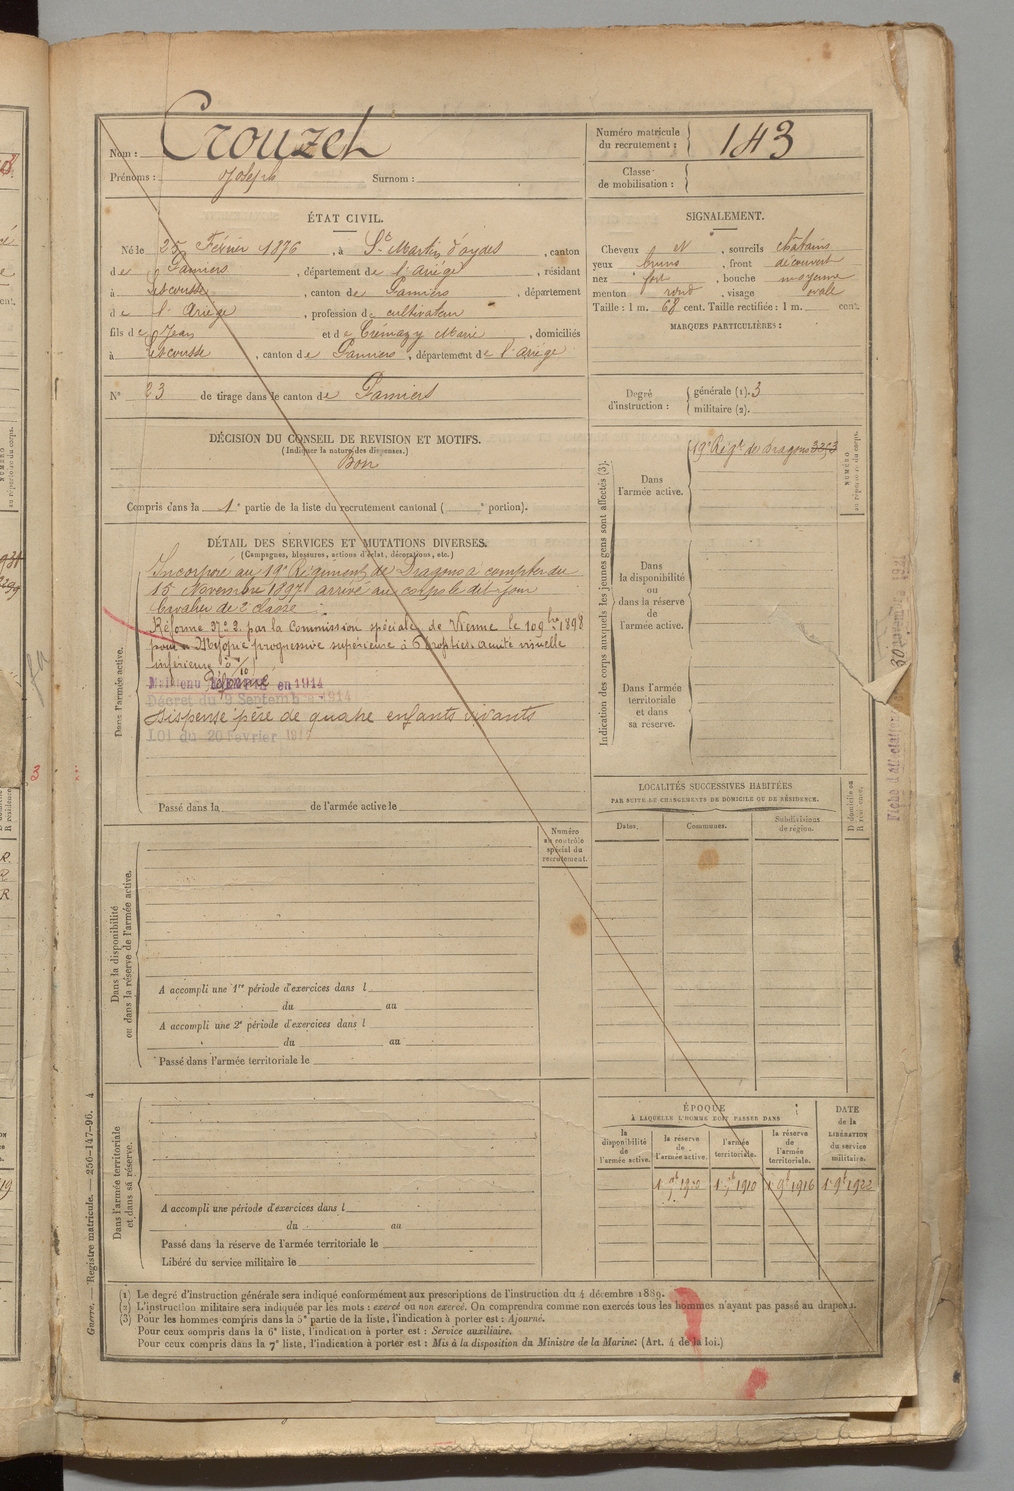 Nom : Crouzet
Prénoms : Joseph Surnom :
Numéro matricule du recrutement : 143
Classe de mobilisation :
ÉTAT CIVIL.
Né le 25 Février 1876, à St Martin d'oydes, canton
de Pamiers, département de l'Ariége, résidant
à Escosse, canton de Pamiers, département
de l'Ariége, profession de cultivateur
fils de Jean et de Crémazy Marie, domiciliés
à Escosse, canton de Pamiers, département de l'Ariége
SIGNALEMENT.
Cheveux N, sourcils châtains
yeux bruns, front découvert
nez fort, bouche moyenne
menton rond, visage ovale
Taille : 1 m. 68 cent. Taille rectifiée : 1 m. cent.
MARQUES PARTICULIÈRES :
N° 23 de tirage dans le canton de Pamiers
Degré d'instruction : générale (1). 3
militaire (2).
DÉCISION DU CONSEIL DE REVISION ET MOTIFS.
(Indiquer la nature des dispenses.)
Bon
Compris dans la 1e partie de la liste du recrutement cantonal ( e portion).
DÉTAIL DES SERVICES ET MUTATIONS DIVERSES.
(Campagnes, blessures, actions d'éclat, décorations, etc.)
Dans l'armée active.
Incorporé au 19e Régiment de Dragons à compter du
15 Novembre 1897 arrivé au corps le dit jour
Cavalier de 2e classe
Réformé No 2 par la Commission spéciale de Vienne le 10 9bre 1898
pour Myopie progressive supérieure à 6 dioptries acuité visuelle
inférieure à 1/10
Maintenu Réformé en 1914
Décret du 9 Septembre 1914
Dispensé père de quatre enfants vivants
LOI du 20 Février 191
Passé dans la de l'armée active le
Indication des corps auxquels les jeunes gens sont affectés (3).
Dans l'armée active.
19e Régt de Dragons 3253
NUMÉRO au répertoire du corps.
Dans la disponibilité ou dans la réserve de l'armée active.
Dans l'armée territoriale et dans sa réserve.
Fiche d'affectation
LOCALITÉS SUCCESSIVES HABITÉES
PAR SUITE DE CHANGEMENTS DE DOMICILE OU DE RÉSIDENCE.
Dates. Communes. Subdivisions de région. D domicile ou R résidence.
Numéro au contrôle spécial du recrutement.
Dans la disponibilité ou dans la réserve de l'armée active.
A accompli une 1re période d'exercices dans l
du au
A accompli une 2e période d'exercices dans l
du au
Passé dans l'armée territoriale le
Dans l'armée territoriale et dans sa réserve.
A accompli une période d'exercices dans l
du au
Passé dans la réserve de l'armée territoriale le
Libéré du service militaire le
ÉPOQUE
À LAQUELLE L'HOMME DOIT PASSER DANS
la disponibilité de l'armée active.
la réserve de l'armée active.
l'armée territoriale.
la réserve de l'armée territoriale.
DATE de la LIBÉRATION du service militaire.
1 9t 1910 1 9t 1916 1 9t 1922
(1) Le degré d'instruction générale sera indiqué conformément aux prescriptions de l'instruction du 4 décembre 1889.
(2) L'instruction militaire sera indiquée par les mots : exercé ou non exercé. On comprendra comme non exercés tous les hommes n'ayant pas passé au drapeau.
(3) Pour les hommes compris dans la 5e partie de la liste, l'indication à porter est : Ajourné.
Pour ceux compris dans la 6e liste, l'indication à porter est : Service auxiliaire.
Pour ceux compris dans la 7e liste, l'indication à porter est : Mis à la disposition du Ministre de la Marine. (Art. 4 de la loi.)
Guerre. — Registre matricule. — 256-147-96. 4